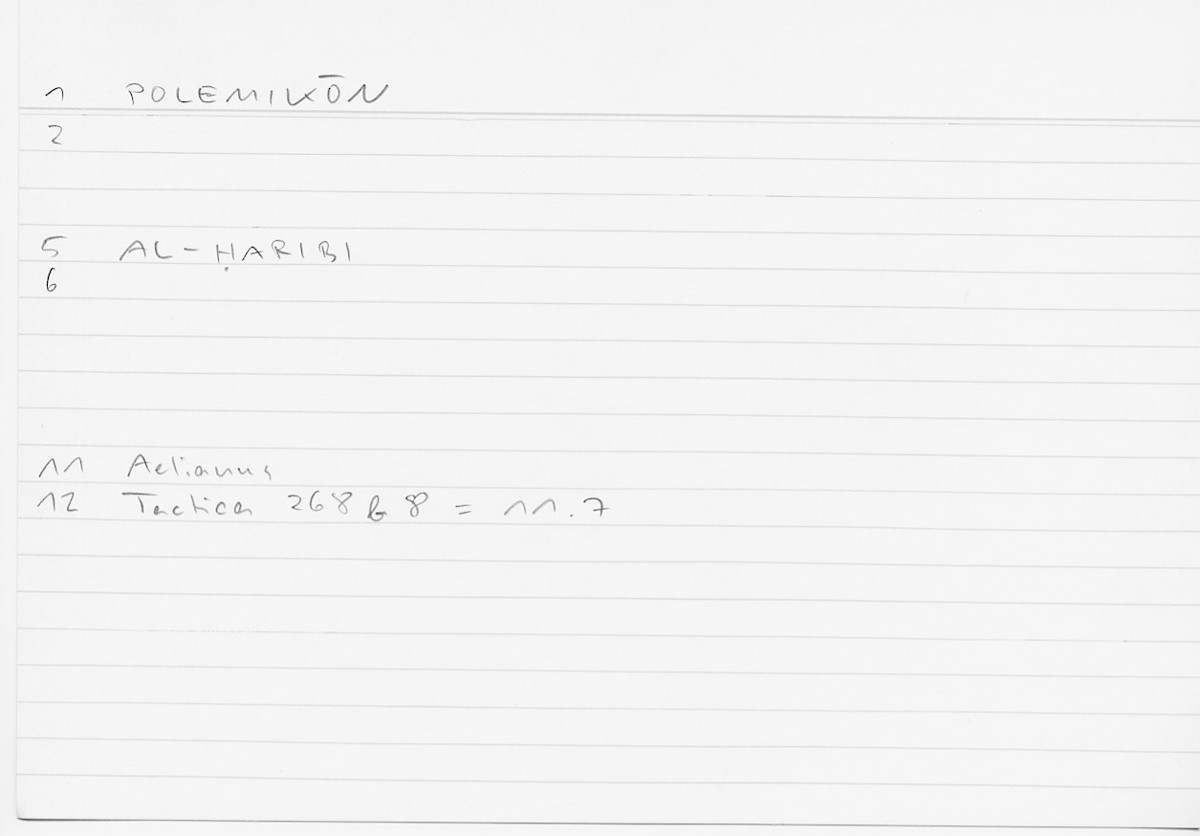 1 POLEMIKŌN
2
5 AL-ḤARIBI
6
11 Aelianus
12 Tactica 268 b 8 = 11.7